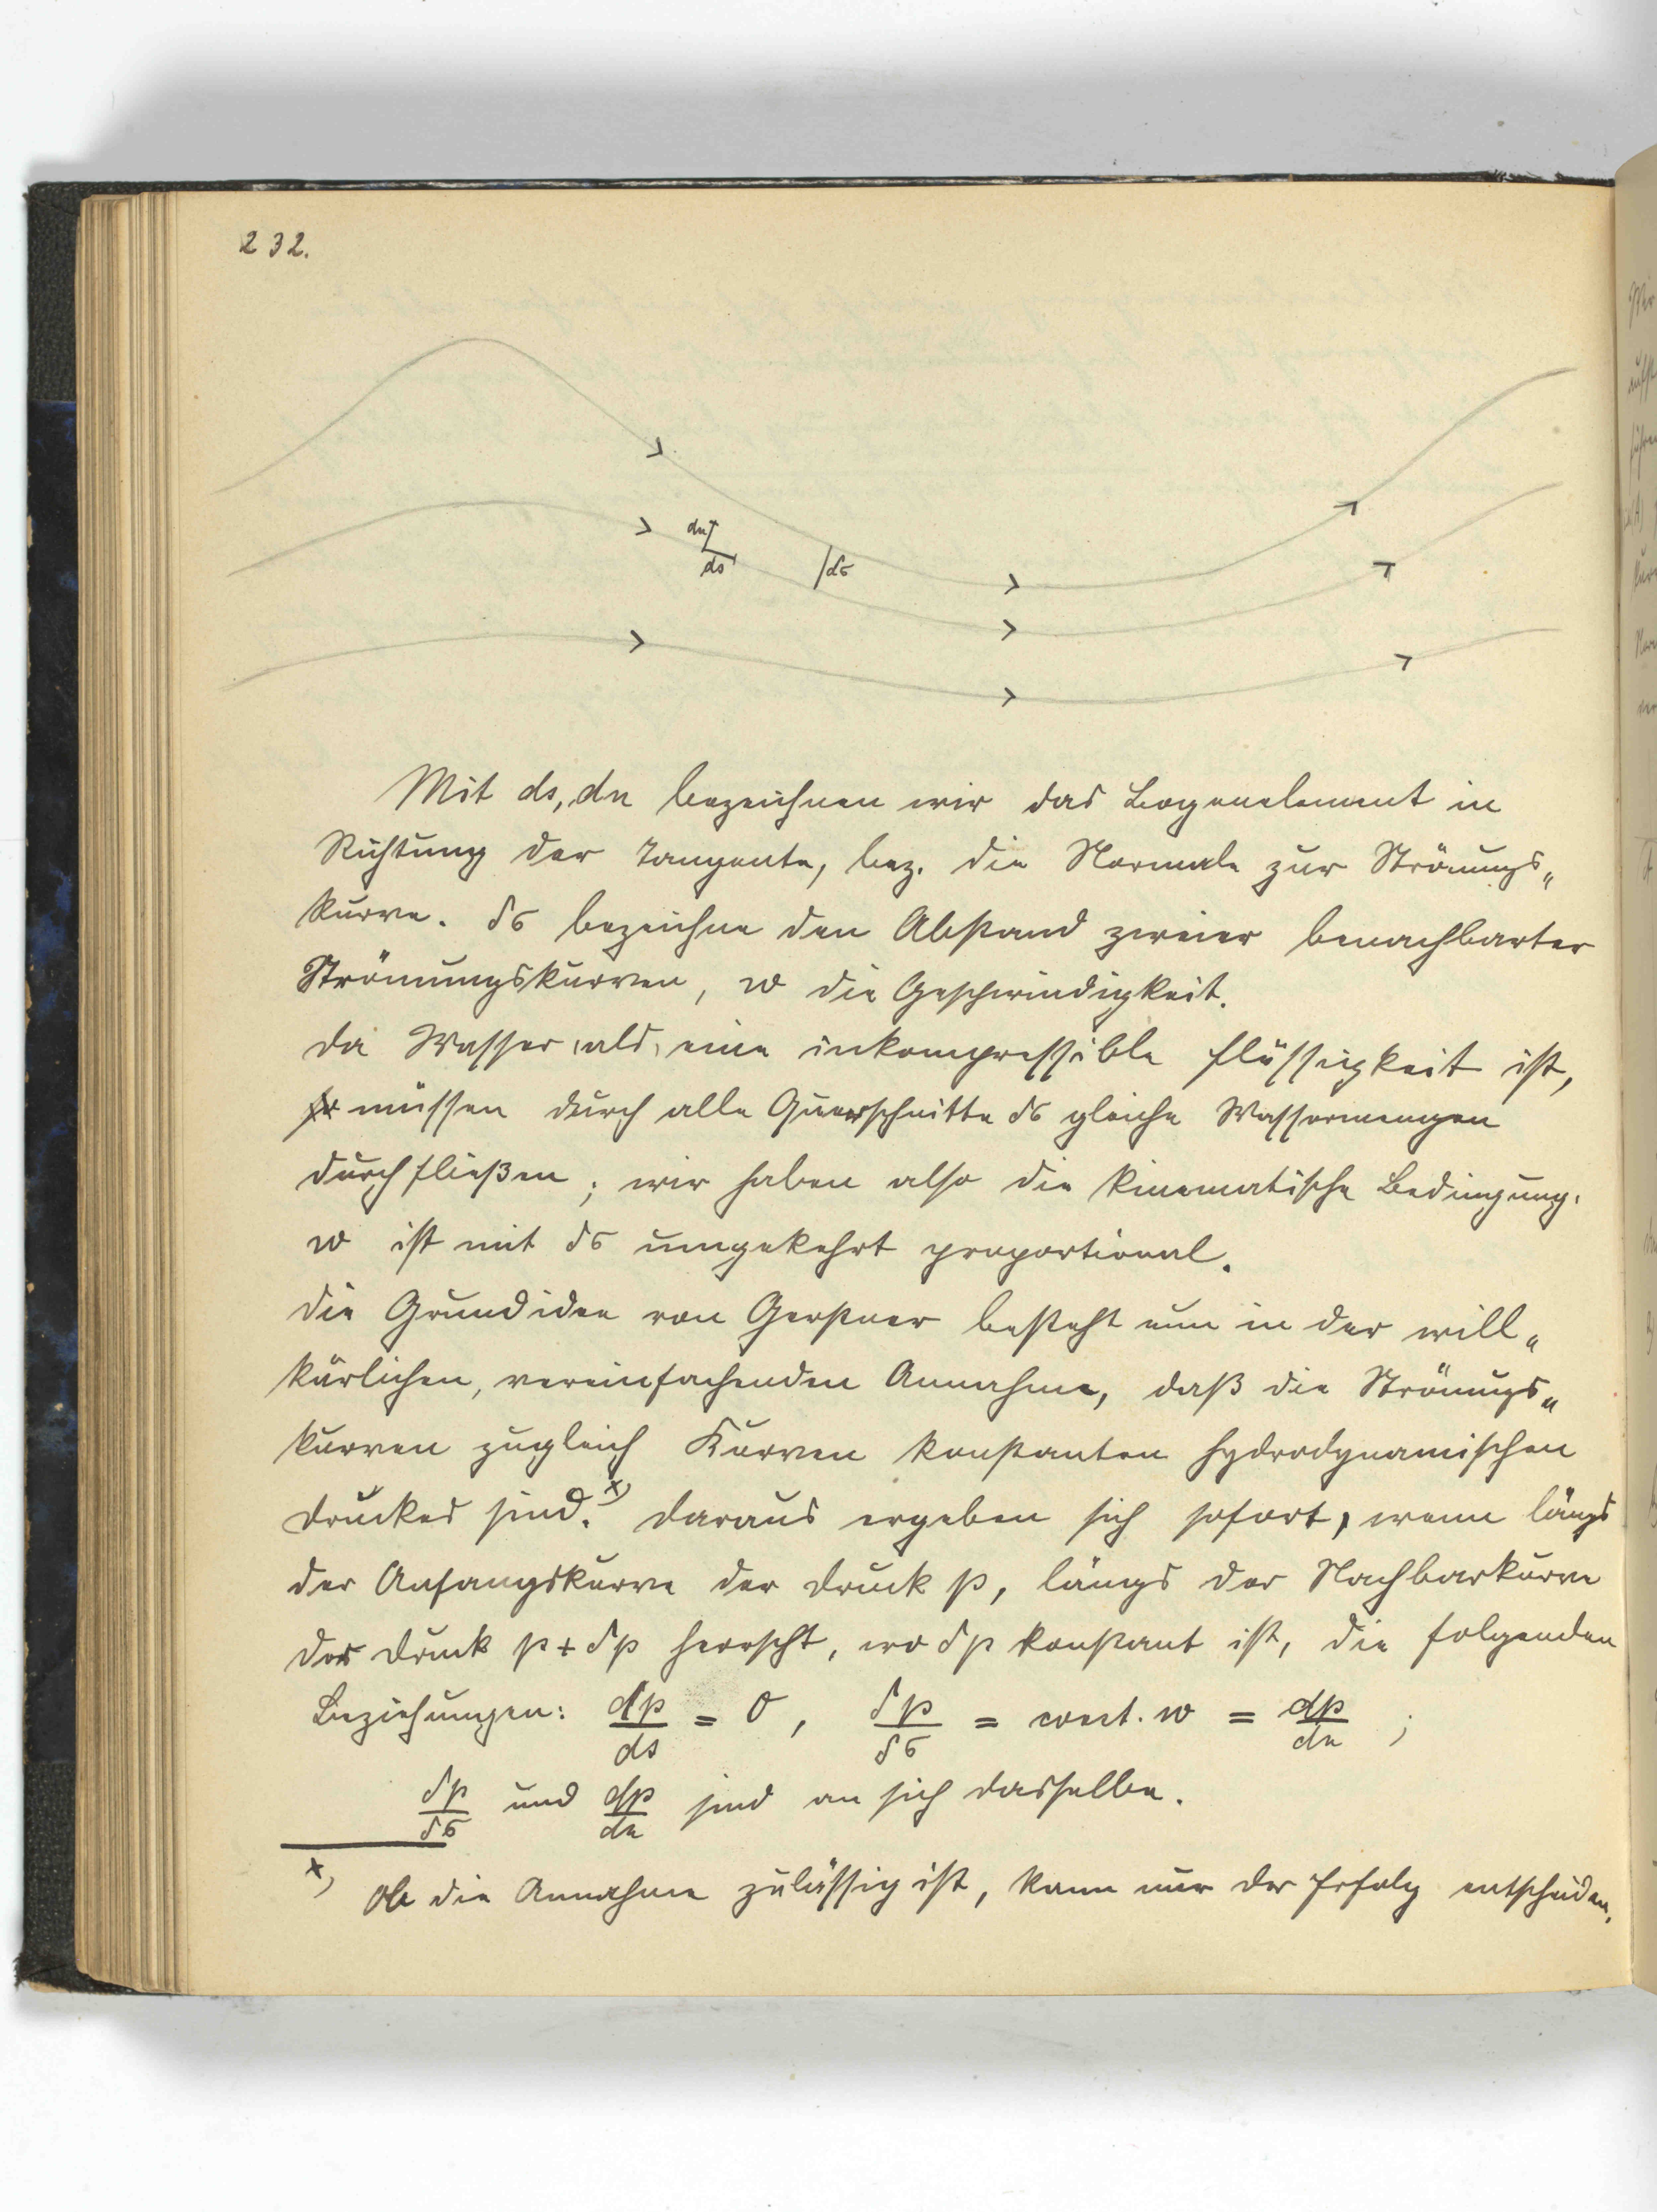 232.
dn
ds
δσ
Mit ds, dn bezeichnen wir das Bogenelement in
Richtung der Tangente, bez. die Normale zur Strömungs„
kurve. δσ bezeichne den Abstand zweier benachbarter
Strömungskurven, w die Geschwindigkeit.
Da Wasser als eine inkompressible Flüssigkeit ist,
müssen durch alle Querschnitte δσ gleiche Wassermengen
durchfließen; wir haben also die kinematische Bedingung.
w ist mit δσ umgekehrt proportional.
Die Grundidee von Gerstner besteht nun in der will„
kürlichen, vereinfachenden Annahme, daß die Strömungs„
kurven zugleich Kurven konstanten hydrodynamischen
Druckes sind.ˣ⁾ Daraus ergeben sich sofort, wenn längs
der Anfangskurve der Druck p, längs der Nachbarkurve
der Druck p + δp herrscht, wo δp konstant ist, die folgenden
Beziehungen: dp/ds = 0, δp/δσ = const. w = dp/dn ;
δp/δσ und dp/dn sind an sich dasselbe.
ˣ⁾ Ob die Annahme zulässig ist, kann nur der Erfolg entscheiden.